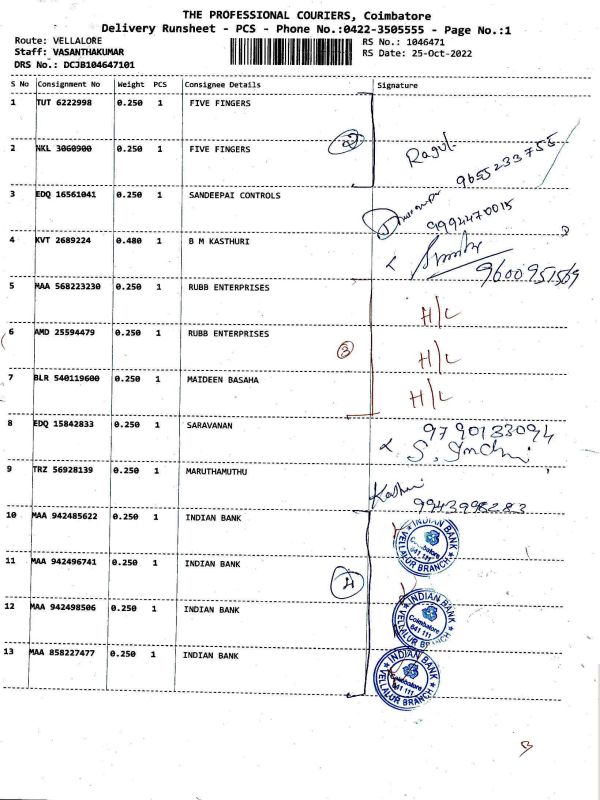 THE PROFESSIONAL COURIERS, Coimbatore
Delivery Runsheet - PCS - Phone No.:0422-3505555 - Page No.:1
Route: VELLALORE RS No.: 1046471
Staff: VASANTHAKUMAR RS Date: 25-Oct-2022
DRS No.: DCJB104647101
S No Consignment No Weight PCS Consignee Details Signature
1 TUT 6222998 0.250 1 FIVE FINGERS
2 NKL 3060900 0.250 1 FIVE FINGERS 2 Ragul. 9655233755
3 EDQ 16561041 0.250 1 SANDEEPAI CONTROLS 9994470015
4 KVT 2689224 0.480 1 B M KASTHURI 9600951569
5 MAA 568223230 0.250 1 RUBB ENTERPRISES H/L
6 AMD 25594479 0.250 1 RUBB ENTERPRISES 3 H/L
7 BLR 540119600 0.250 1 MAIDEEN BASAHA H/L
8 EDQ 15842833 0.250 1 SARAVANAN 9790133094
9 TRZ 56928139 0.250 1 MARUTHAMUTHU 9943998283
10 MAA 942485622 0.250 1 INDIAN BANK INDIAN BANK Coimbatore 641 111 VELLALUR BRANCH
11 MAA 942496741 0.250 1 INDIAN BANK 4
12 MAA 942498506 0.250 1 INDIAN BANK INDIAN BANK Coimbatore 641 111 VELLALUR BRANCH
13 MAA 858227477 0.250 1 INDIAN BANK INDIAN BANK Coimbatore 641 111 VELLALUR BRANCH